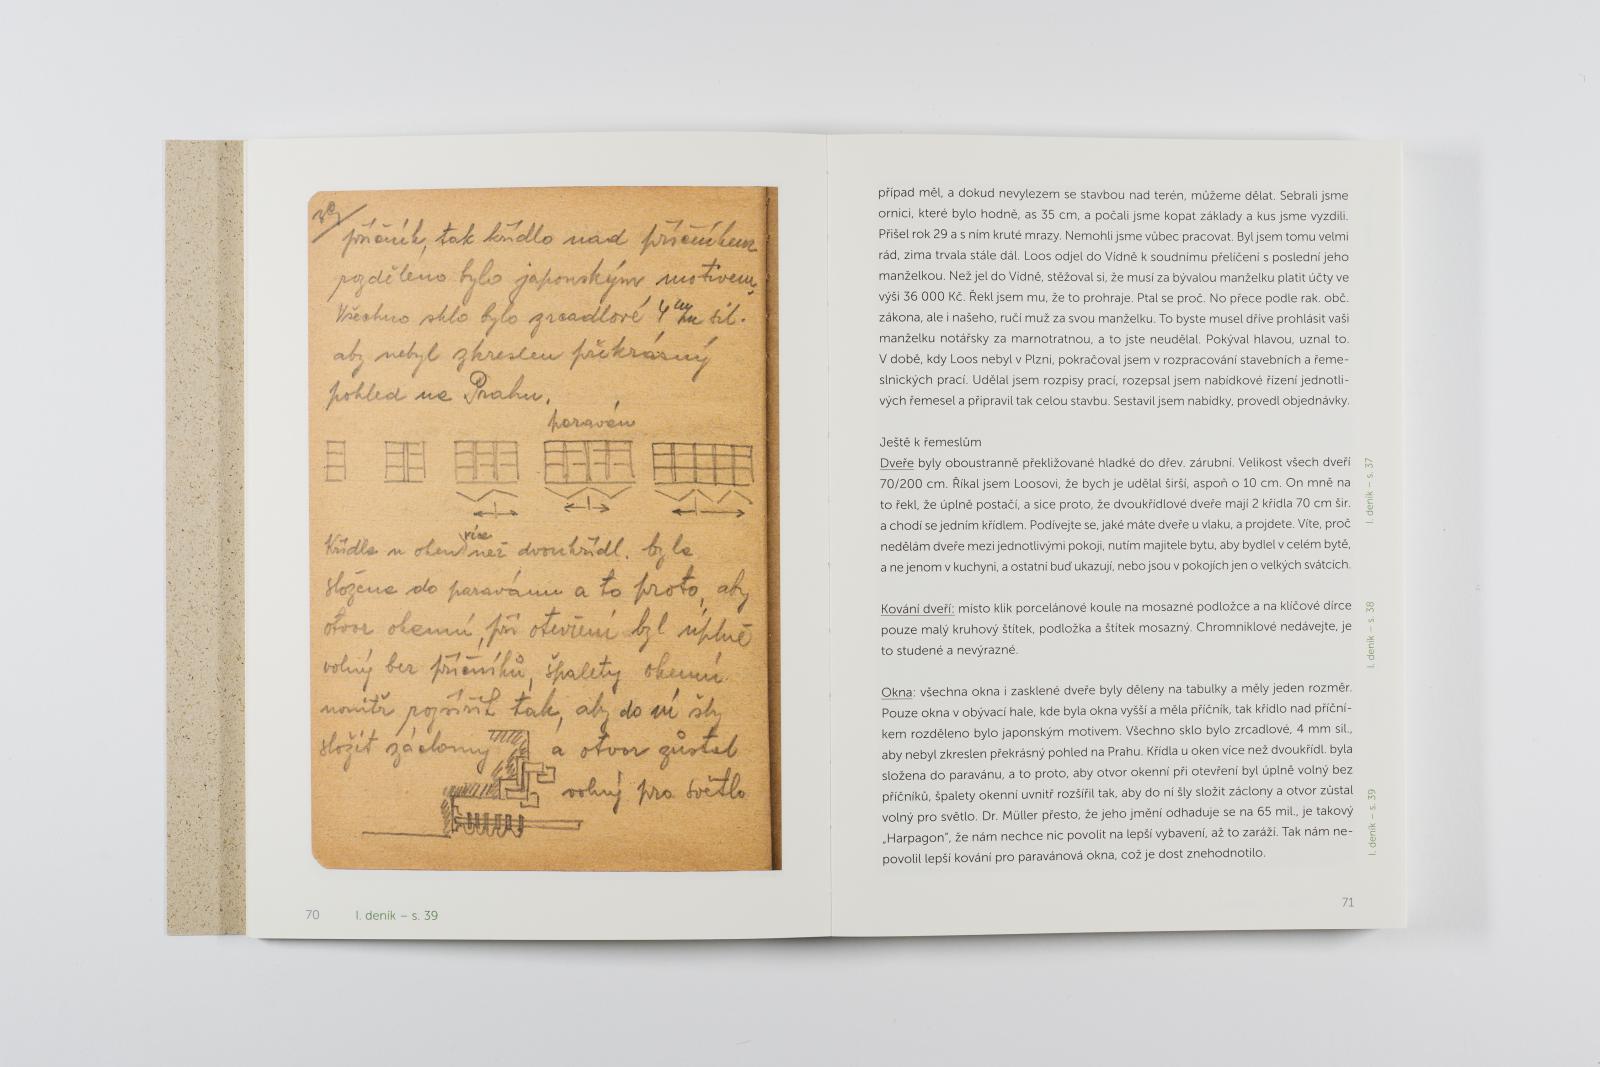 39
příčník, tak křídlo nad příčníkem
rozděleno bylo japonským motivem.
Všechno sklo bylo zrcadlové 4 mm sil.
aby nebyl zkreslen překrásný
pohled na Prahu.
paraván
více
Křídla u oken než dvoukřídl. byla
složena do paravánu a to proto, aby
otvor okenní, při otevření byl úplně
volný bez příčníků, špalety okenní
uvnitř rozšířil tak, aby do ní šly
složit záclony a otvor zůstal
volný pro světlo
70 I. deník – s. 39
případ měl, a dokud nevylezem se stavbou nad terén, můžeme dělat. Sebrali jsme
ornici, které bylo hodně, as 35 cm, a počali jsme kopat základy a kus jsme vyzdili.
Přišel rok 29 a s ním kruté mrazy. Nemohli jsme vůbec pracovat. Byl jsem tomu velmi
rád, zima trvala stále dál. Loos odjel do Vídně k soudnímu přelíčení s poslední jeho
manželkou. Než jel do Vídně, stěžoval si, že musí za bývalou manželku platit účty ve
výši 36 000 Kč. Řekl jsem mu, že to prohraje. Ptal se proč. No přece podle rak. obč.
zákona, ale i našeho, ručí muž za svou manželku. To byste musel dříve prohlásit vaši
manželku notářsky za marnotratnou, a to jste neudělal. Pokýval hlavou, uznal to.
V době, kdy Loos nebyl v Plzni, pokračoval jsem v rozpracování stavebních a řeme-
slnických prací. Udělal jsem rozpisy prací, rozepsal jsem nabídkové řízení jednotli-
vých řemesel a připravil tak celou stavbu. Sestavil jsem nabídky, provedl objednávky.
Ještě k řemeslům
Dveře byly oboustranně překližované hladké do dřev. zárubní. Velikost všech dveří
70/200 cm. Říkal jsem Loosovi, že bych je udělal širší, aspoň o 10 cm. On mně na
to řekl, že úplně postačí, a sice proto, že dvoukřídlové dveře mají 2 křídla 70 cm šir.
a chodí se jedním křídlem. Podívejte se, jaké máte dveře u vlaku, a projdete. Víte, proč
nedělám dveře mezi jednotlivými pokoji, nutím majitele bytu, aby bydlel v celém bytě,
a ne jenom v kuchyni, a ostatní buď ukazují, nebo jsou v pokojích jen o velkých svátcích.
I. deník – s. 37
Kování dveří: místo klik porcelánové koule na mosazné podložce a na klíčové dírce
pouze malý kruhový štítek, podložka a štítek mosazný. Chromniklové nedávejte, je
to studené a nevýrazné.
I. deník – s. 38
Okna: všechna okna i zasklené dveře byly děleny na tabulky a měly jeden rozměr.
Pouze okna v obývací hale, kde byla okna vyšší a měla příčník, tak křídlo nad příční-
kem rozděleno bylo japonským motivem. Všechno sklo bylo zrcadlové, 4 mm sil.,
aby nebyl zkreslen překrásný pohled na Prahu. Křídla u oken více než dvoukřídl. byla
složena do paravánu, a to proto, aby otvor okenní při otevření byl úplně volný bez
příčníků, špalety okenní uvnitř rozšířil tak, aby do ní šly složit záclony a otvor zůstal
volný pro světlo. Dr. Müller přesto, že jeho jmění odhaduje se na 65 mil., je takový
„Harpagon“, že nám nechce nic povolit na lepší vybavení, až to zaráží. Tak nám ne-
povolil lepší kování pro paravánová okna, což je dost znehodnotilo.
I. deník – s. 39
71